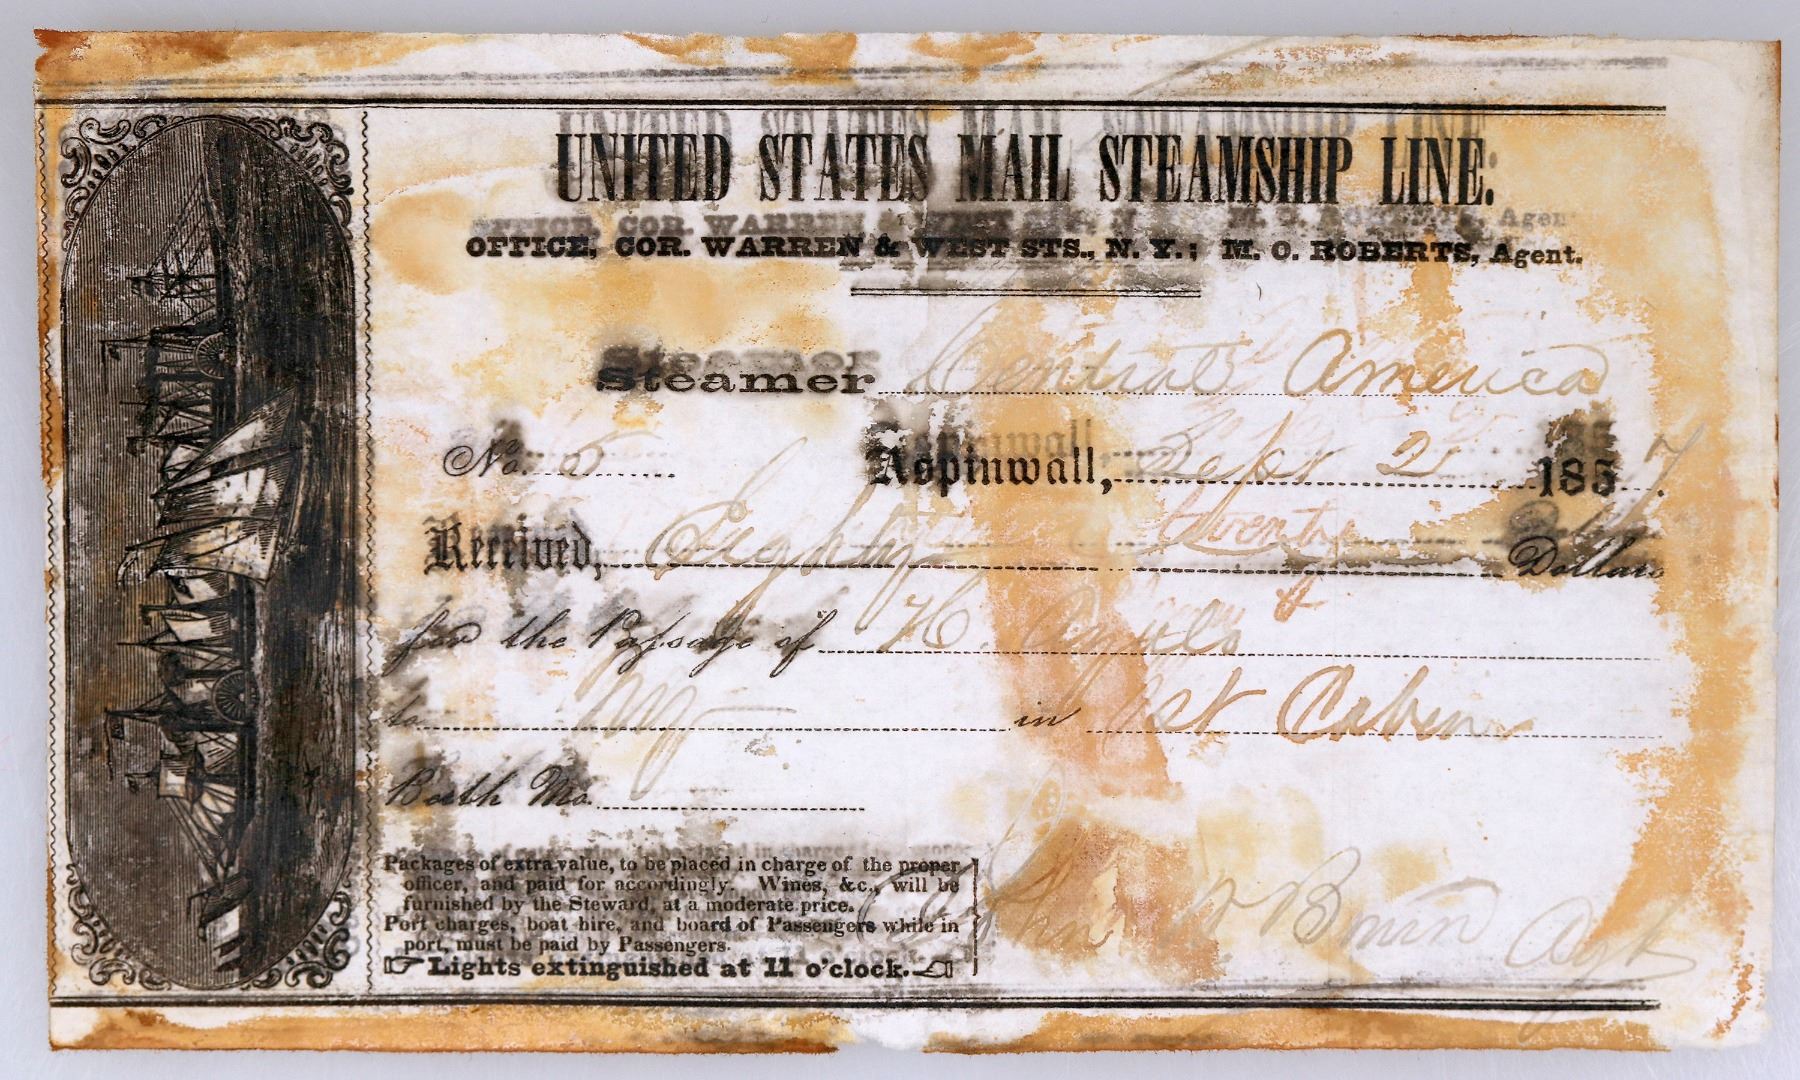 UNITED STATES MAIL STEAMSHIP LINE.
OFFICE, COR. WARREN & WEST STS., N. Y.; M. O. ROBERTS, Agent.
Steamer Central America
No. 5 Aspinwall, Sept 2 1857.
Received, Eighty Dollars
for the Passage of H.
to NY in 1st Cabin
Berth No.
Packages of extra value, to be placed in charge of the proper
officer, and paid for accordingly. Wines, &c., will be
furnished by the Steward, at a moderate price.
Port charges, boat hire, and board of Passengers while in
port, must be paid by Passengers.
☞ Lights extinguished at 11 o'clock. ☜